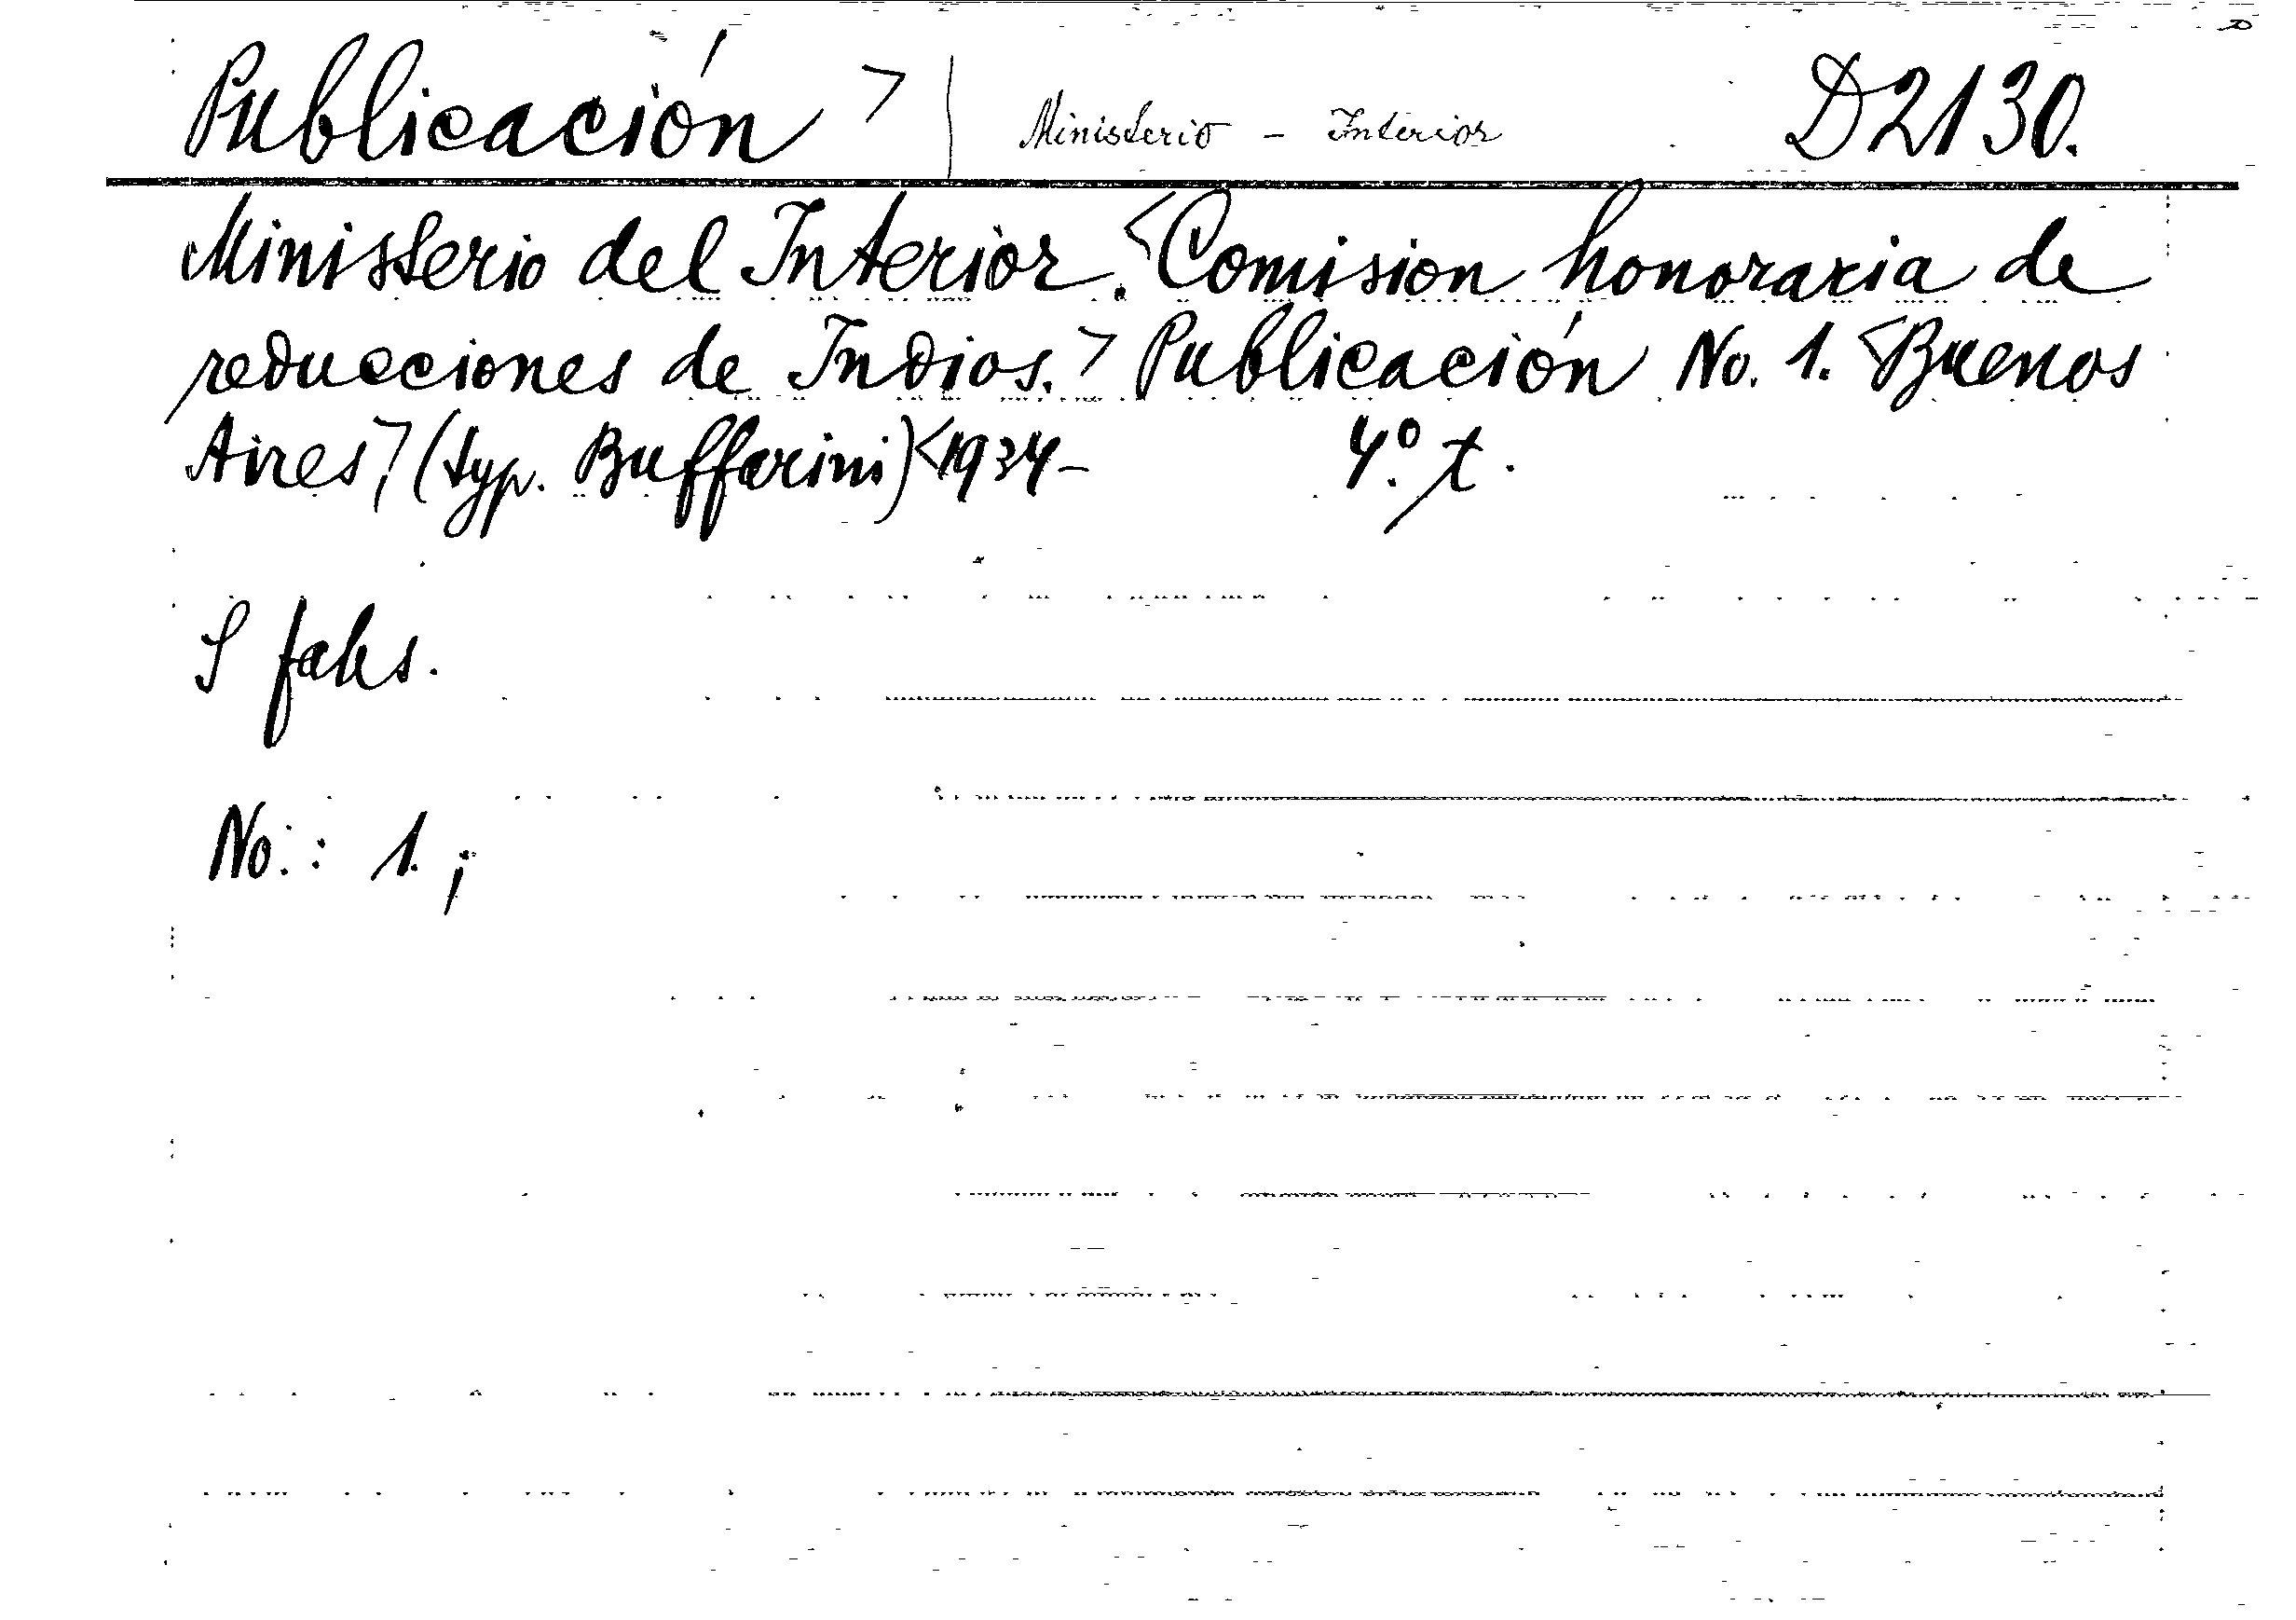 Publicación > | Ministerio - Interior D2130.
Ministerio del Interior. <Comision honoraria de
reducciones de Indios.> Publicación No. 1. <Buenos
Aires,> (typ. Buffarini) <1934- 4.º t.
S faks.
No.: 1. ;